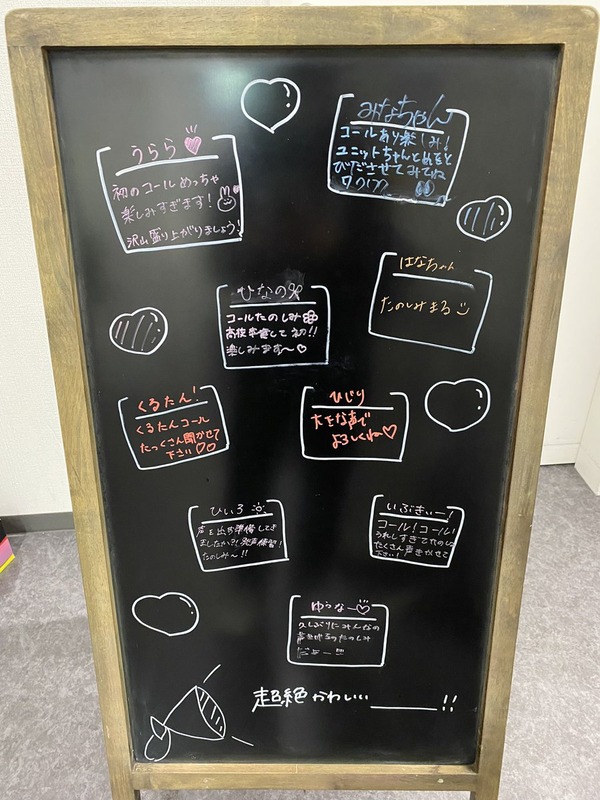 みなちゃん
コールあり楽しみ!
ユニットちゃんとめをと
びださせてみてね
ワクワク
うらら
初のコールめっちゃ
楽しみすぎます!
沢山盛り上がりましょう!
はなちゃん
たのしみまる
ひなの
コールたのしみ
高校卒業して初!!
楽しみます〜♡
くるたん!
くるたんコール
たっくさん聞かせて
下さい♡♡
ひじり
大きな声で
よろしくね〜♡
ひいろ
声を出す準備してき
ましたか?!発声練習!
たのしみ〜!!
いぶきぃー!
コール!コール!
うれしすぎてたのしみ
たくさん声きかせて
下さい!
ゆうなー♡
久しぶりにみんなの
たのしみ
だぁー!!
超絶かわいい______!!